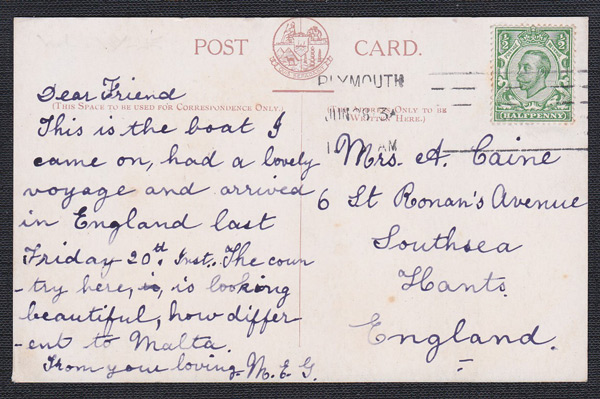 POST CARD.
Dear Friend
(THIS SPACE TO BE USED FOR CORRESPONDENCE ONLY.)
This is the boat I
came on, had a lovely
voyage and arrived
in England last
Friday 20th Inst. The coun
-try here, is, is looking
beautiful, how differ
-ent to Malta.
From your loving M.E.G.
PLYMOUTH
AM
(THE ADDRESS ONLY TO BE
WRITTEN HERE.)
HALFPENNY
Mrs. A. Caine
6 St Ronan's Avenue
Southsea
Hants.
England.